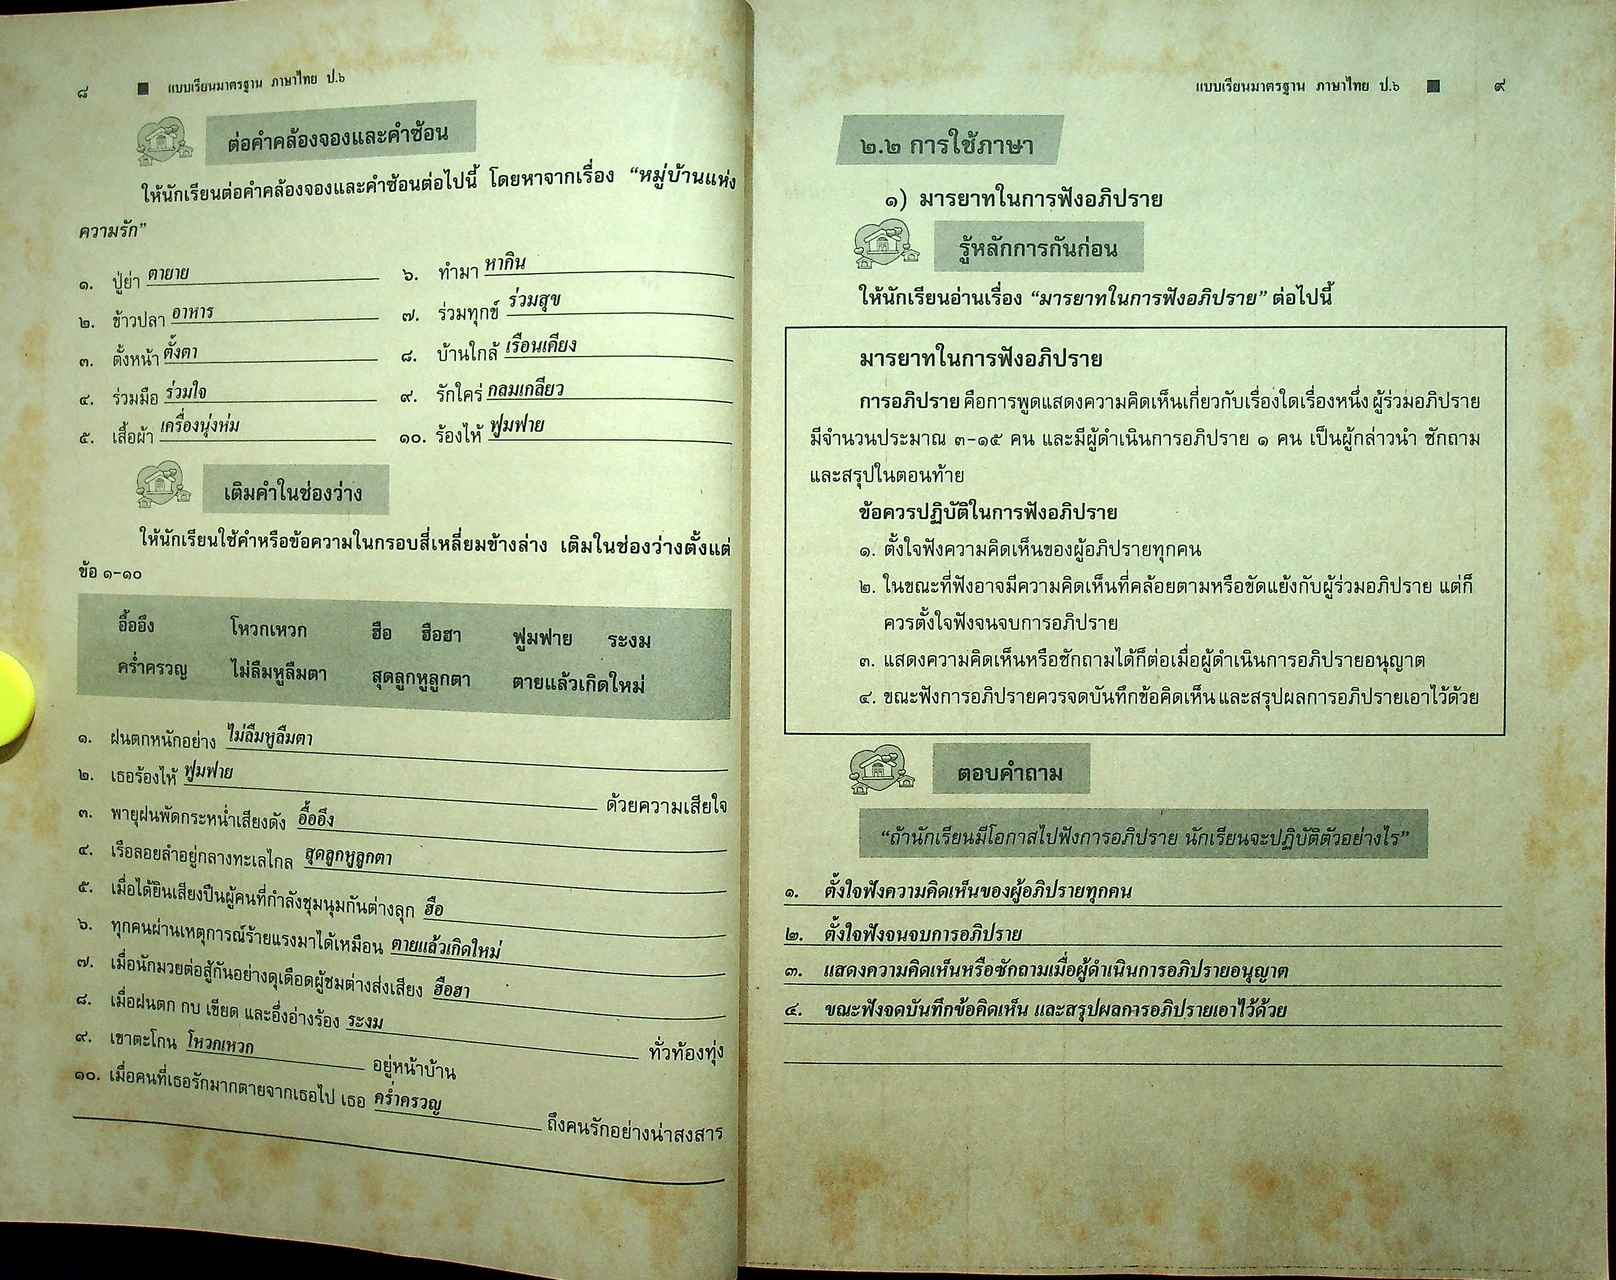 ๘ ■ แบบเรียนมาตรฐาน ภาษาไทย ป.๖
ต่อคำคล้องจองและคำซ้อน
ให้นักเรียนต่อคำคล้องจองและคำซ้อนต่อไปนี้ โดยหาจากเรื่อง “หมู่บ้านแห่ง
ความรัก”
๑. ปู่ย่า ตายาย
๒. ข้าวปลา อาหาร
๓. ตั้งหน้า ตั้งตา
๔. ร่วมมือ ร่วมใจ
๕. เสื้อผ้า เครื่องนุ่งห่ม
๖. ทำมา หากิน
๗. ร่วมทุกข์ ร่วมสุข
๘. บ้านใกล้ เรือนเคียง
๙. รักใคร่ กลมเกลียว
๑๐. ร้องไห้ ฟูมฟาย
เติมคำในช่องว่าง
ให้นักเรียนใช้คำหรือข้อความในกรอบสี่เหลี่ยมข้างล่าง เติมในช่องว่างตั้งแต่
ข้อ ๑-๑๐
อื้ออึง โหวกเหวก ฮือ ฮือฮา ฟูมฟาย ระงม
คร่ำครวญ ไม่ลืมหูลืมตา สุดลูกหูลูกตา ตายแล้วเกิดใหม่
๑. ฝนตกหนักอย่าง ไม่ลืมหูลืมตา
๒. เธอร้องไห้ ฟูมฟาย ด้วยความเสียใจ
๓. พายุฝนพัดกระหน่ำเสียงดัง อื้ออึง
๔. เรือลอยลำอยู่กลางทะเลไกล สุดลูกหูลูกตา
๕. เมื่อได้ยินเสียงปืนผู้คนที่กำลังชุมนุมกันต่างลุก ฮือ
๖. ทุกคนผ่านเหตุการณ์ร้ายแรงมาได้เหมือน ตายแล้วเกิดใหม่
๗. เมื่อนักมวยต่อสู้กันอย่างดุเดือดผู้ชมต่างส่งเสียง ฮือฮา
๘. เมื่อฝนตก กบ เขียด และอึ่งอ่างร้อง ระงม ทั่วท้องทุ่ง
๙. เขาตะโกน โหวกเหวก อยู่หน้าบ้าน
๑๐. เมื่อคนที่เธอรักมากตายจากเธอไป เธอ คร่ำครวญ ถึงคนรักอย่างน่าสงสาร
แบบเรียนมาตรฐาน ภาษาไทย ป.๖ ■ ๙
๒.๒ การใช้ภาษา
๑) มารยาทในการฟังอภิปราย
รู้หลักการกันก่อน
ให้นักเรียนอ่านเรื่อง “มารยาทในการฟังอภิปราย” ต่อไปนี้
มารยาทในการฟังอภิปราย
การอภิปราย คือการพูดแสดงความคิดเห็นเกี่ยวกับเรื่องใดเรื่องหนึ่ง ผู้ร่วมอภิปราย
มีจำนวนประมาณ ๓-๑๕ คน และมีผู้ดำเนินการอภิปราย ๑ คน เป็นผู้กล่าวนำ ซักถาม
และสรุปในตอนท้าย
ข้อควรปฏิบัติในการฟังอภิปราย
๑. ตั้งใจฟังความคิดเห็นของผู้อภิปรายทุกคน
๒. ในขณะที่ฟังอาจมีความคิดเห็นที่คล้อยตามหรือขัดแย้งกับผู้ร่วมอภิปราย แต่ก็
ควรตั้งใจฟังจนจบการอภิปราย
๓. แสดงความคิดเห็นหรือซักถามได้ก็ต่อเมื่อผู้ดำเนินการอภิปรายอนุญาต
๔. ขณะฟังการอภิปรายควรจดบันทึกข้อคิดเห็น และสรุปผลการอภิปรายเอาไว้ด้วย
ตอบคำถาม
“ถ้านักเรียนมีโอกาสไปฟังการอภิปราย นักเรียนจะปฏิบัติตัวอย่างไร”
๑. ตั้งใจฟังความคิดเห็นของผู้อภิปรายทุกคน
๒. ตั้งใจฟังจนจบการอภิปราย
๓. แสดงความคิดเห็นหรือซักถามเมื่อผู้ดำเนินการอภิปรายอนุญาต
๔. ขณะฟังจดบันทึกข้อคิดเห็น และสรุปผลการอภิปรายเอาไว้ด้วย